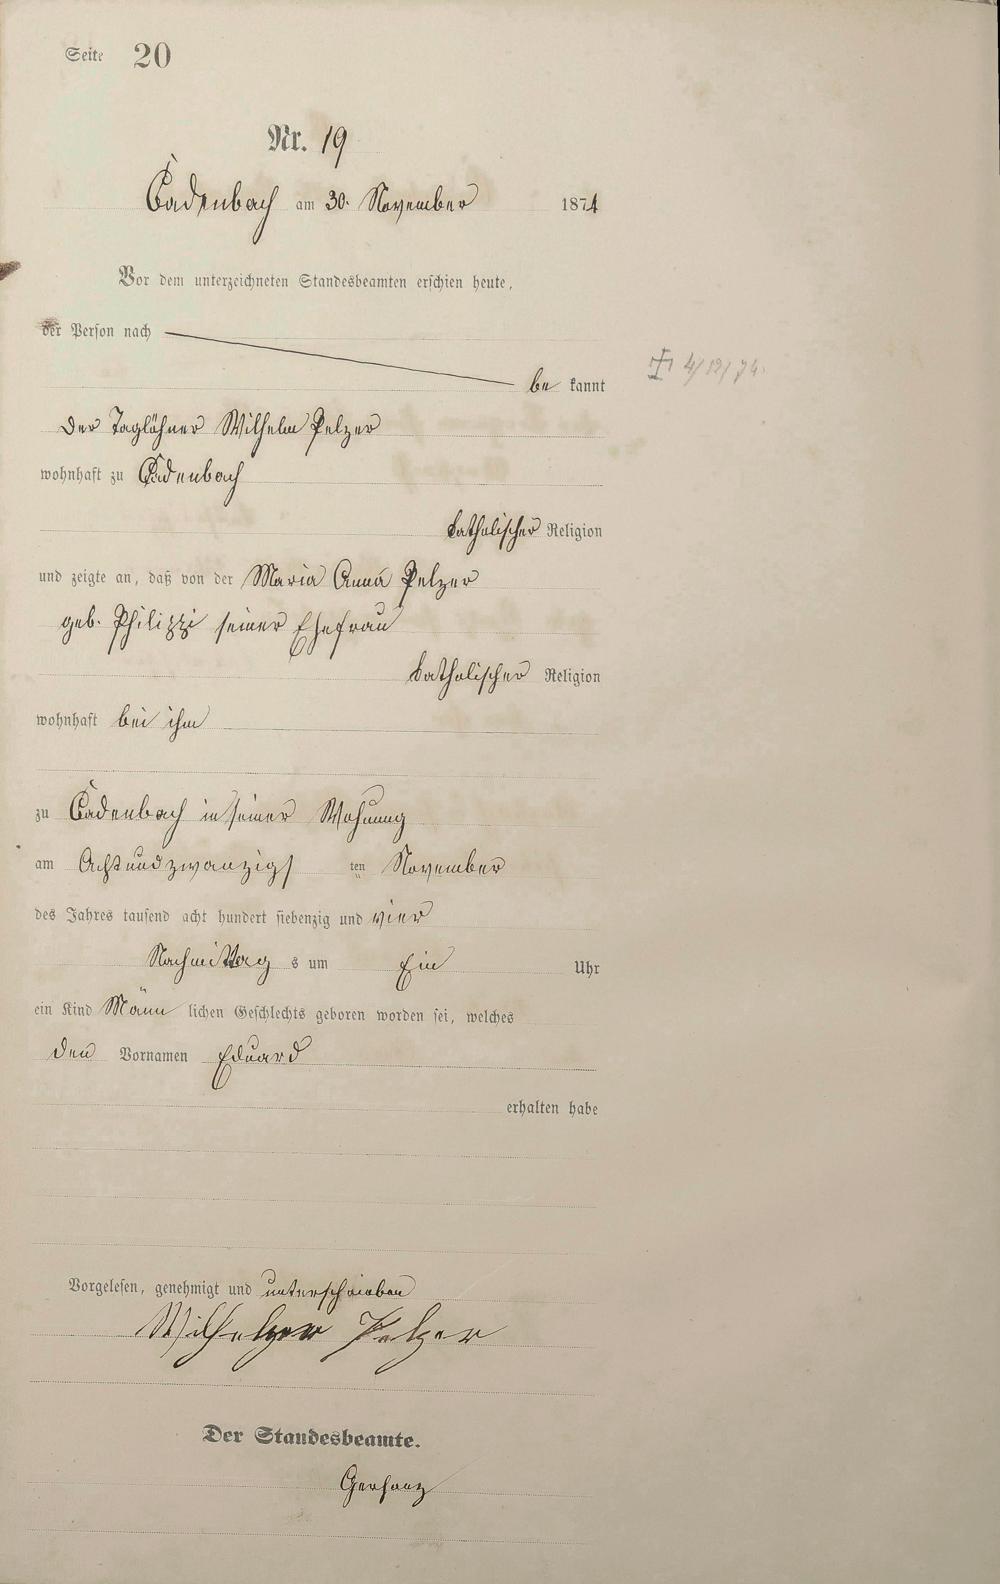 Seite 20
Nr. 19
Cadenbach am 30. November 1874
Vor dem unterzeichneten Standesbeamten erschien heute,
der Person nach
be kannt
† 4/12/74.
der Taglöhner Wilhelm Pelzer
wohnhaft zu Cadenbach
katholischer Religion
und zeigte an, daß von der Maria Anna Pelzer
geb. Philippi seiner Ehefrau
katholischer Religion
wohnhaft bei ihm
zu Cadenbach in seiner Wohnung
am Achtundzwanzigs ten November
des Jahres tausend acht hundert siebenzig und vier
Nachmittag s um Ein Uhr
ein Kind Männ lichen Geschlechts geboren worden sei, welches
den Vornamen Eduard
erhalten habe
Vorgelesen, genehmigt und unterschrieben
Pelzer
Der Standesbeamte.